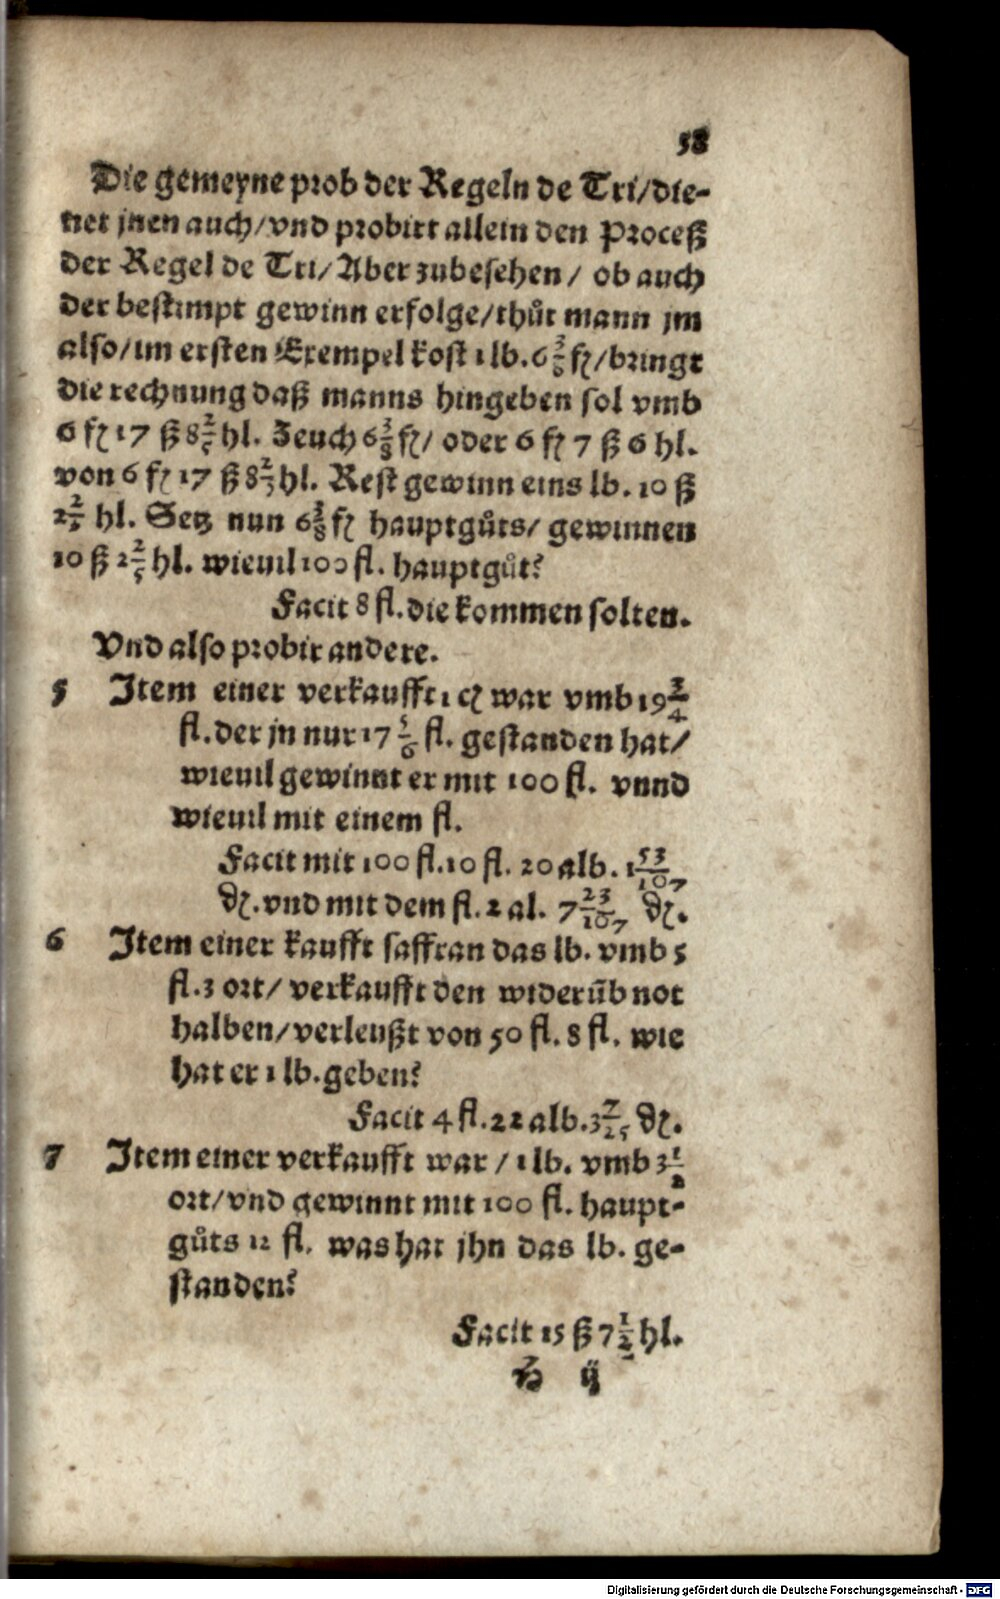 58
Die gemeyne prob der Regeln de Tri/die-
net jnen auch/vnd probirt allein den Proceß
der Regel de Tri/Aber zubesehen/ ob auch
der bestimpt gewinn erfolge/thůt mann jm
also/im ersten Exempel kost 1 lb. 6 3/8 fl/bringt
die rechnung daß manns hingeben sol vmb
6 fl 17 ß 8 2/5 hl. Zeuch 6 3/8 fl/ oder 6 fl 7 ß 6 hl.
von 6 fl 17 ß 8 2/5 hl. Rest gewinn eins lb. 10 ß
2 2/5 hl. Setz nun 6 3/8 fl hauptgůts/ gewinnen
10 ß 2 2/5 hl. wieuil 100 fl. hauptgůt?
Facit 8 fl. die kommen solten.
Vnd also probir andere.
5 Item einer verkaufft 1 cz war vmb 19 3/4
fl. der jn nur 17 5/6 fl. gestanden hat/
wieuil gewinnt er mit 100 fl. vnnd
wieuil mit einem fl.
Facit mit 100 fl. 10 fl. 20 alb. 1 53/107
dz. vnd mit dem fl. 2 al. 7 23/107 dz.
6 Item einer kaufft saffran das lb. vmb 5
fl. 3 ort/ verkaufft den widerüb not
halben/verleußt von 50 fl. 8 fl. wie
hat er 1 lb. geben?
Facit 4 fl. 22 alb. 3 7/25 dz.
7 Item einer verkaufft war / 1 lb. vmb 3 1/2
ort/vnd gewinnt mit 100 fl. haupt-
gůts 12 fl. was hat jhn das lb. ge-
standen?
Facit 15 ß 7 1/2 hl.
H ij
Digitalisierung gefördert durch die Deutsche Forschungsgemeinschaft - DFG